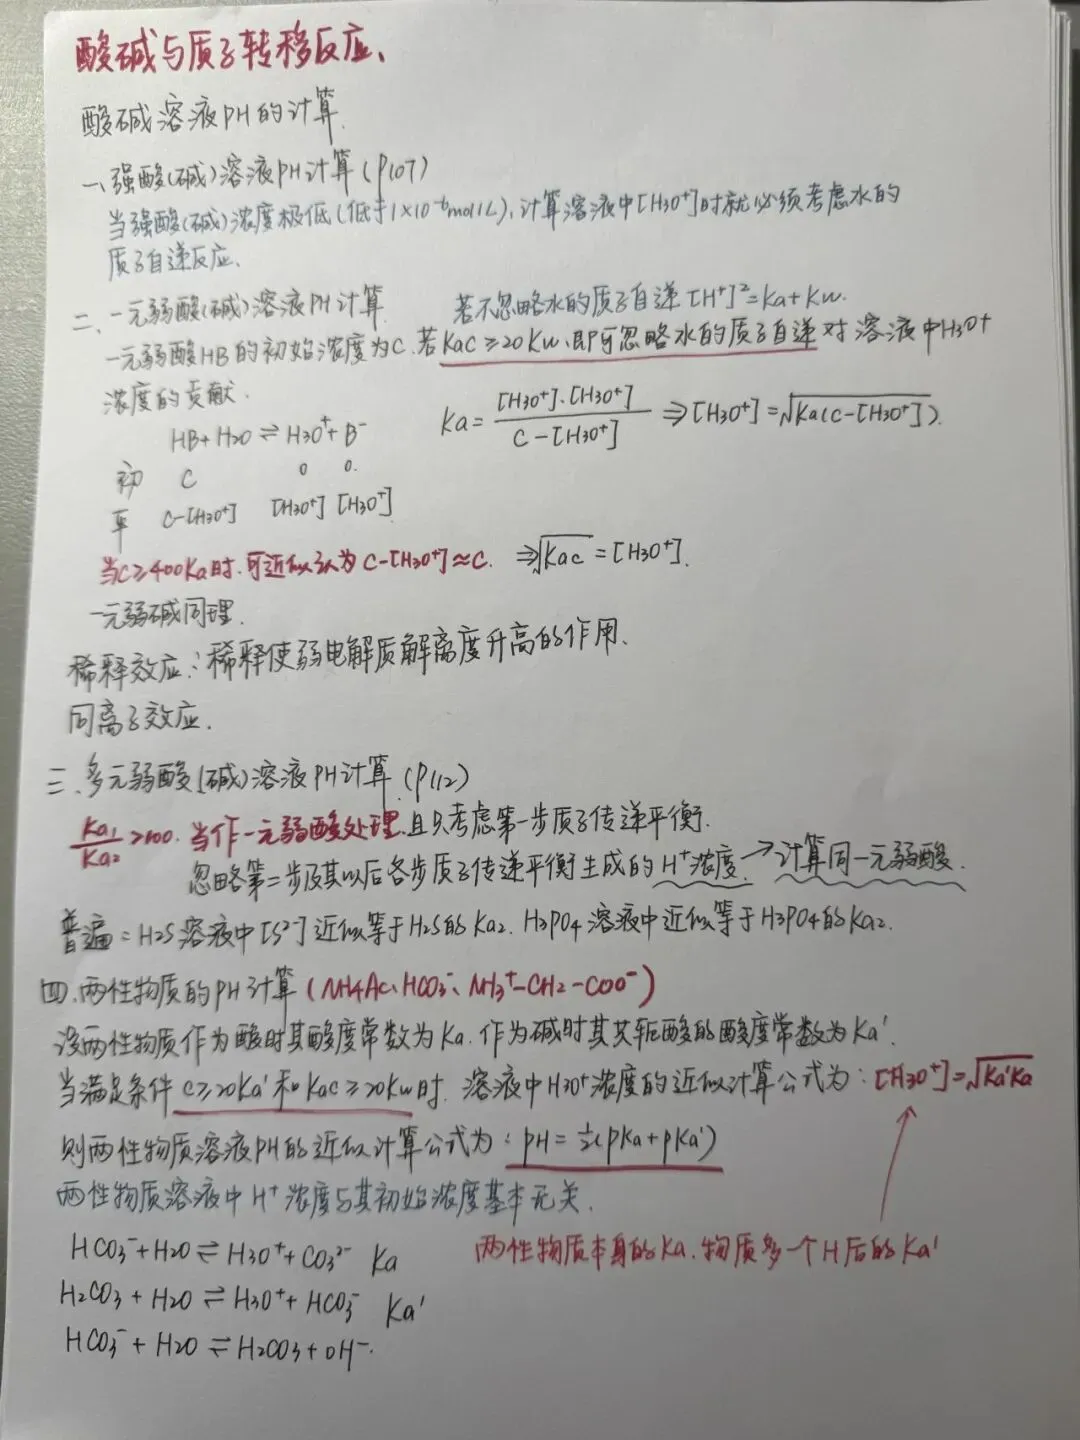 酸碱与质子转移反应、
酸碱溶液PH的计算.
一、强酸(碱)溶液PH计算(P107)
当强酸(碱)浓度极低(低于1×10⁻⁶mol/L),计算溶液中[H3O⁺]时就必须考虑水的
质子自递反应.
二、一元弱酸(碱)溶液PH计算 若不忽略水的质子自递[H⁺]²=Ka+Kw.
一元弱酸HB的初始浓度为C.若KaC≥20Kw,即可忽略水的质子自递对溶液中H3O⁺
浓度的贡献.
Ka=[H3O⁺]·[H3O⁺]/(C-[H3O⁺]) ⇒[H3O⁺]=√Ka(C-[H3O⁺]).
HB+H2O⇌H3O⁺+B⁻
初 C 0 0.
平 C-[H3O⁺] [H3O⁺] [H3O⁺]
当C≥400Ka时.可近似认为C-[H3O⁺]≈C. ⇒√Kac=[H3O⁺].
一元弱碱同理.
稀释效应:稀释使弱电解质解离度升高的作用、
同离子效应.
三、多元弱酸(碱)溶液PH计算(P112)
Ka1/Ka2>100. 当作一元弱酸处理.且只考虑第一步质子传递平衡.
忽略第二步及其以后各步质子传递平衡生成的H⁺浓度.→计算同一元弱酸.
普遍=H2S溶液中[S²⁻]近似等于H2S的Ka2. H3PO4溶液中近似等于H3PO4的Ka2.
四.两性物质的PH计算(NH4Ac、HCO3⁻、NH3⁺-CH2-COO⁻)
设两性物质作为酸时其酸度常数为Ka.作为碱时其共轭酸的酸度常数为Ka'.
当满足条件C≥20Ka'和Kac≥20Kw时.溶液中H3O⁺浓度的近似计算公式为:[H3O⁺]=√Ka'Ka
则两性物质溶液PH的近似计算公式为:pH=½(pKa+pKa')
两性物质溶液中H⁺浓度与其初始浓度基本无关.
HCO3⁻+H2O⇌H3O⁺+CO3²⁻ Ka
两性物质本身的Ka.物质多一个H后的Ka'
H2CO3+H2O⇌H3O⁺+HCO3⁻ Ka'
HCO3⁻+H2O⇌H2CO3+OH⁻.